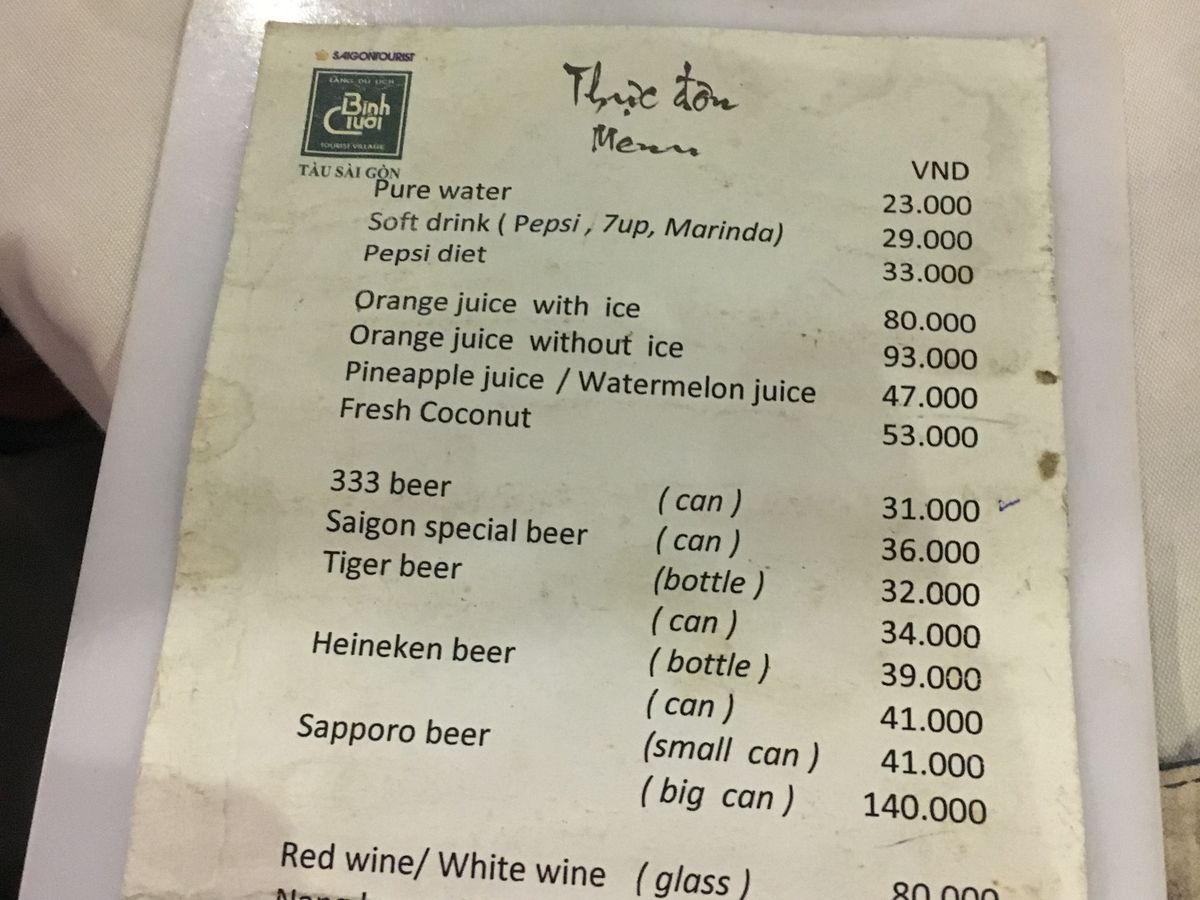 SAIGONTOURIST
LÀNG DU LỊCH
Bình Quới
TOURIST VILLAGE
TÀU SÀI GÒN
Thực đơn
Menu
VND
Pure water 23.000
Soft drink ( Pepsi , 7up, Marinda) 29.000
Pepsi diet 33.000
Orange juice with ice 80.000
Orange juice without ice 93.000
Pineapple juice / Watermelon juice 47.000
Fresh Coconut 53.000
333 beer ( can ) 31.000
Saigon special beer ( can ) 36.000
Tiger beer (bottle ) 32.000
( can ) 34.000
Heineken beer ( bottle ) 39.000
( can ) 41.000
Sapporo beer (small can ) 41.000
( big can ) 140.000
Red wine/ White wine ( glass ) 80.000